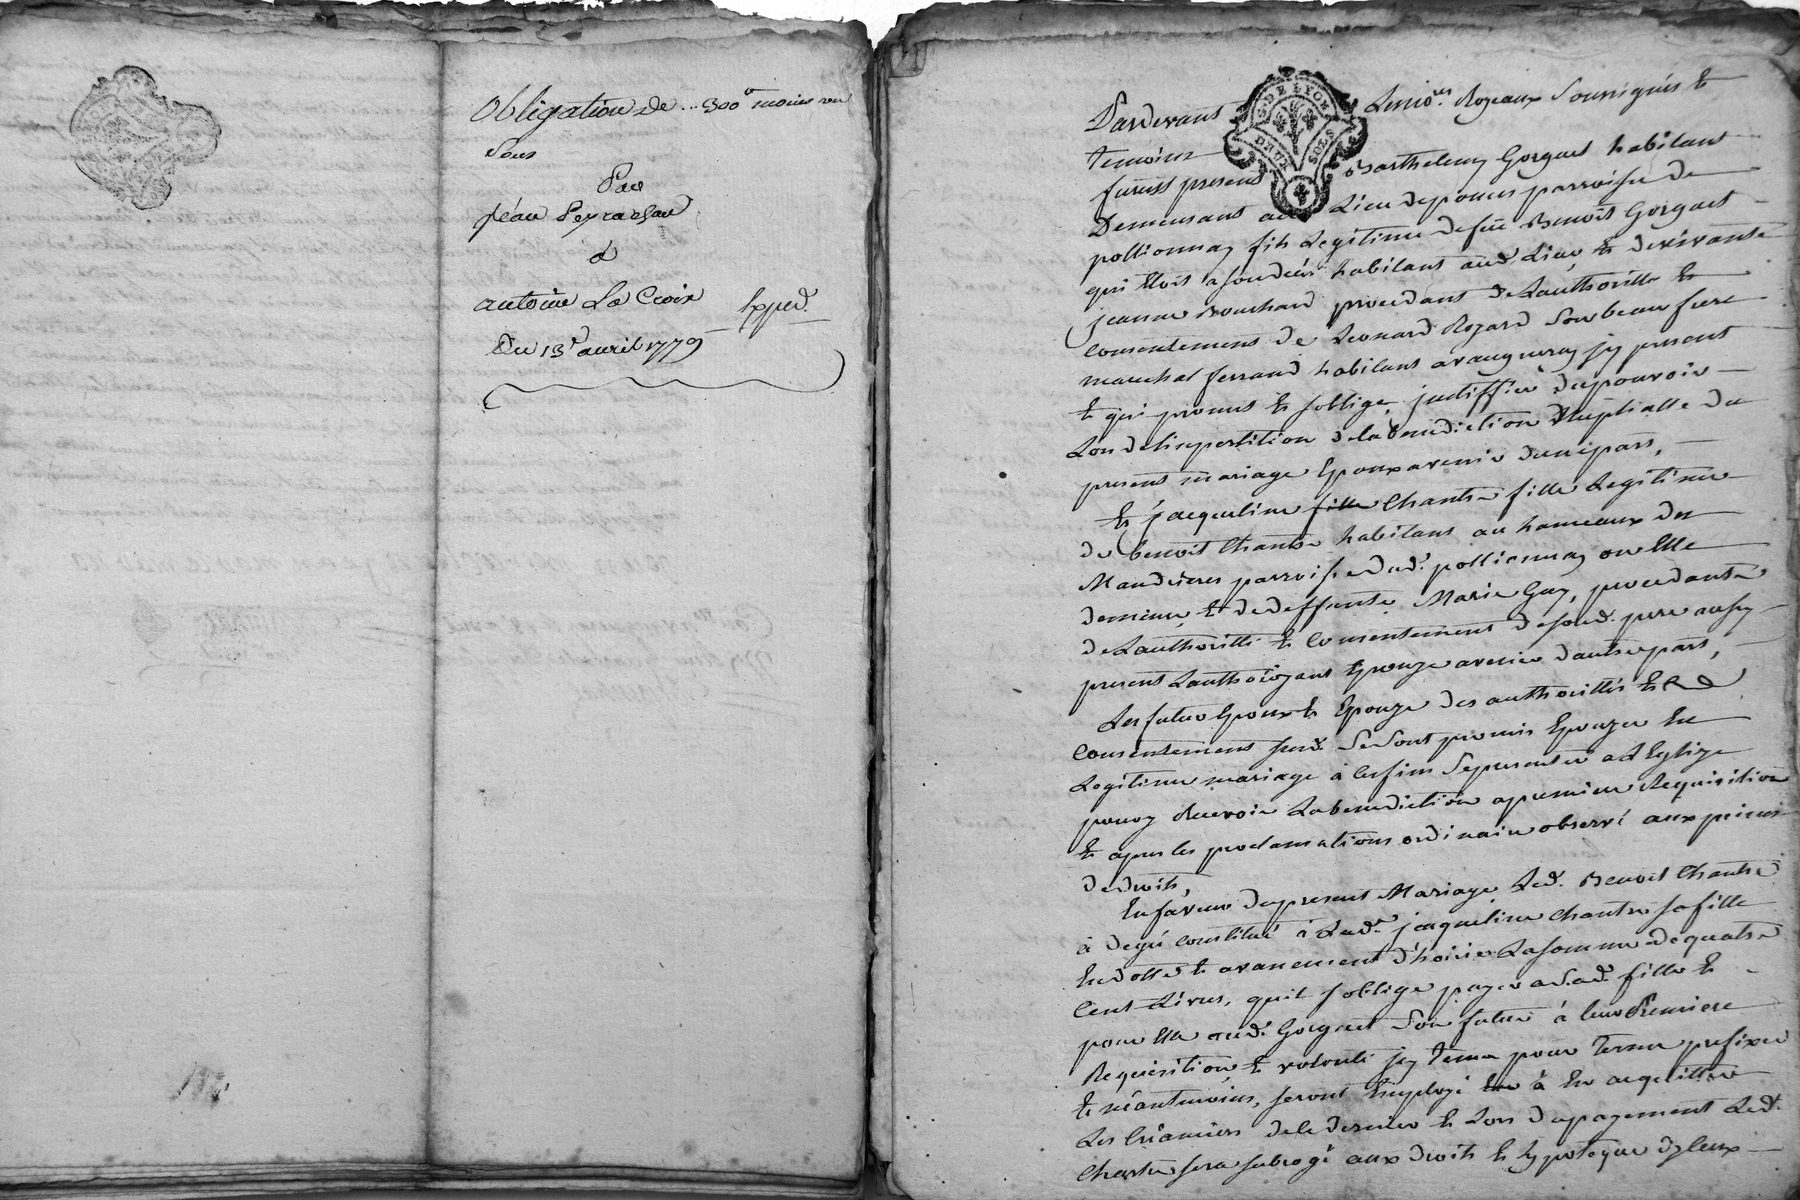 Obligation de ... 300# moins un
Sous
Par
jéan Peyrachau
a
antoine La Croix
Expéd.
Du 13e avril 1779
Pardevant Les no.res Royaux Soussignés Et
G. DE LYON
DEUX SOLS
temoins
furent presents Barthelemy Gorguet habitant
Demeurant au Lieu deponcer parroisse de
pollionnay fils Legitime defeu Benoit Gorguet
qui Etoit a son deceds habitant aud. Lieu Et devivante
jeanne Bouchard procedant de Lauthoritté Et
consentement de Leonard Rozard Son beau frere
marechal ferrand habitant a vaugneray jcy present
Et qui promet Et soblige, justiffier du pouvoir
Lors de limpertition dela benediction Nuptialle du
present mariage Epoux avenir dunepart,
Et jacqueline fille Chantre fille Legitime
de benoit Chantre habitant au hameaux des
Maudieres parroisse dud. pollionnay ou Elle
demeure Et de deffunte Marie Gay, procedante
de Lauthoritté Et consentement de sond. pere aussy
present Lauthorizant Epouze avenir dautrepart,
Les futur Epoux Et Epouze des authorittés Et
consentement susd. Se Sont promis Epouzer En
Legitime mariage à cesfins Sepresenter a LEglize
pour y Recevoir La benediction a premiere Requisition
Et apres les proclamations ordinaire observé aux peines
de droit,
En faveur dupresent Mariage Led. Benoit Chantre
à degré constitué à Lad.e jacqueline Chantre sa fille
En dotte Et avancement d'hoirie La somme de quatre
cent Livres, quil soblige payer a Sad. fille Et
pour Elle aud. Gorguet Son futur à leur Premiere
Requisition Et volonté jcy tenu pour terme prefixe
Et néantmoins, seront Employé à En acquitter
Les créanciers de ce dernier Et Lors du payement Led.
Chantre sera subrogé aux droits Et hypoteque diceux